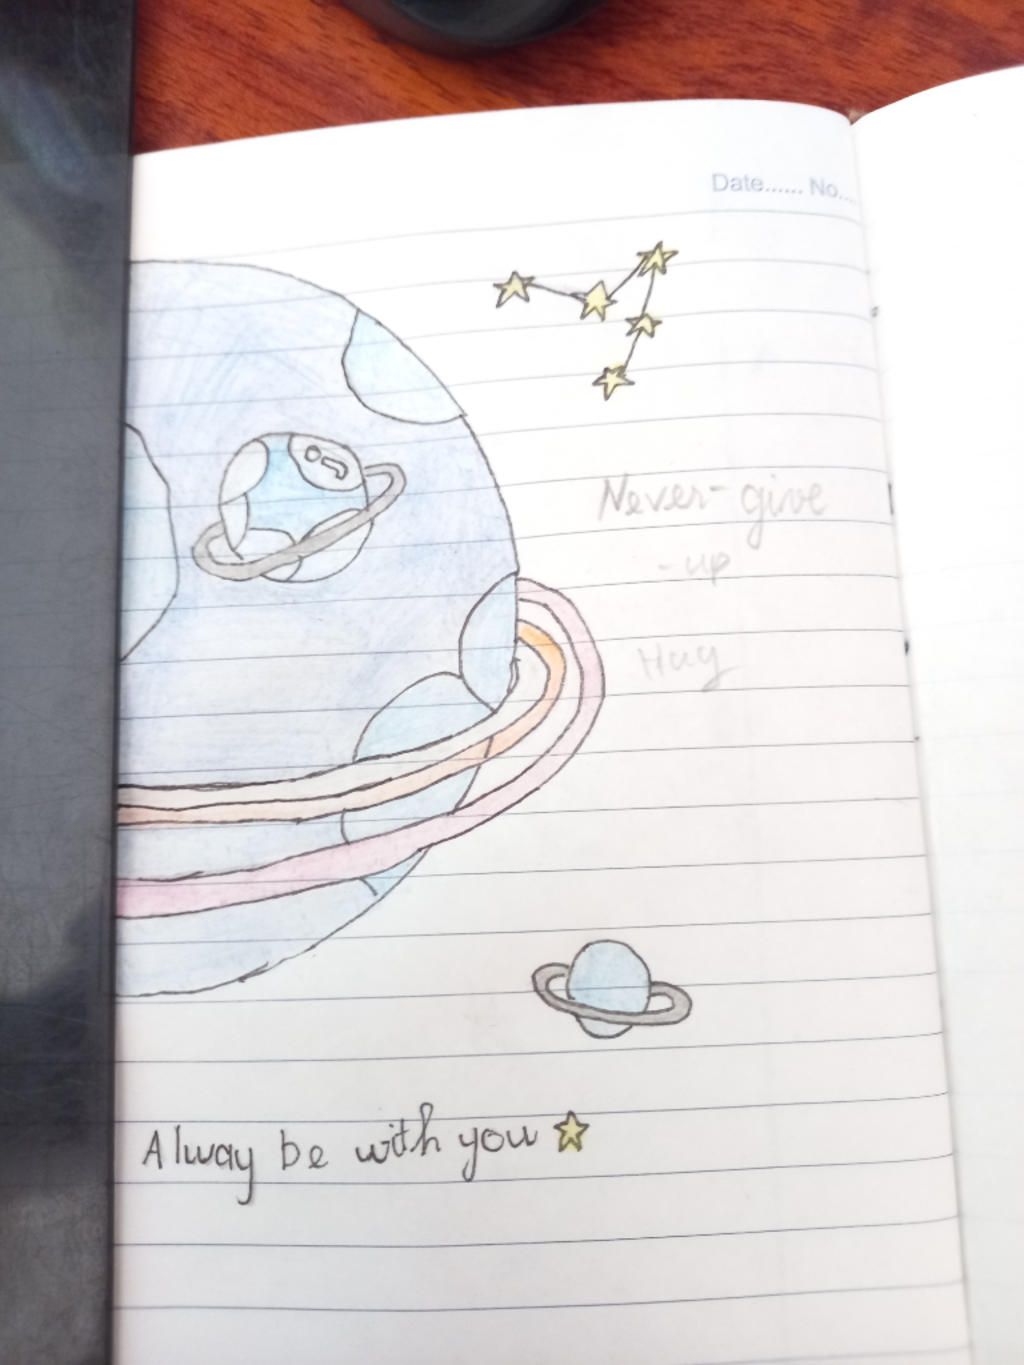 Date...... No....
Never-give
-up
Hug
Alway be with you